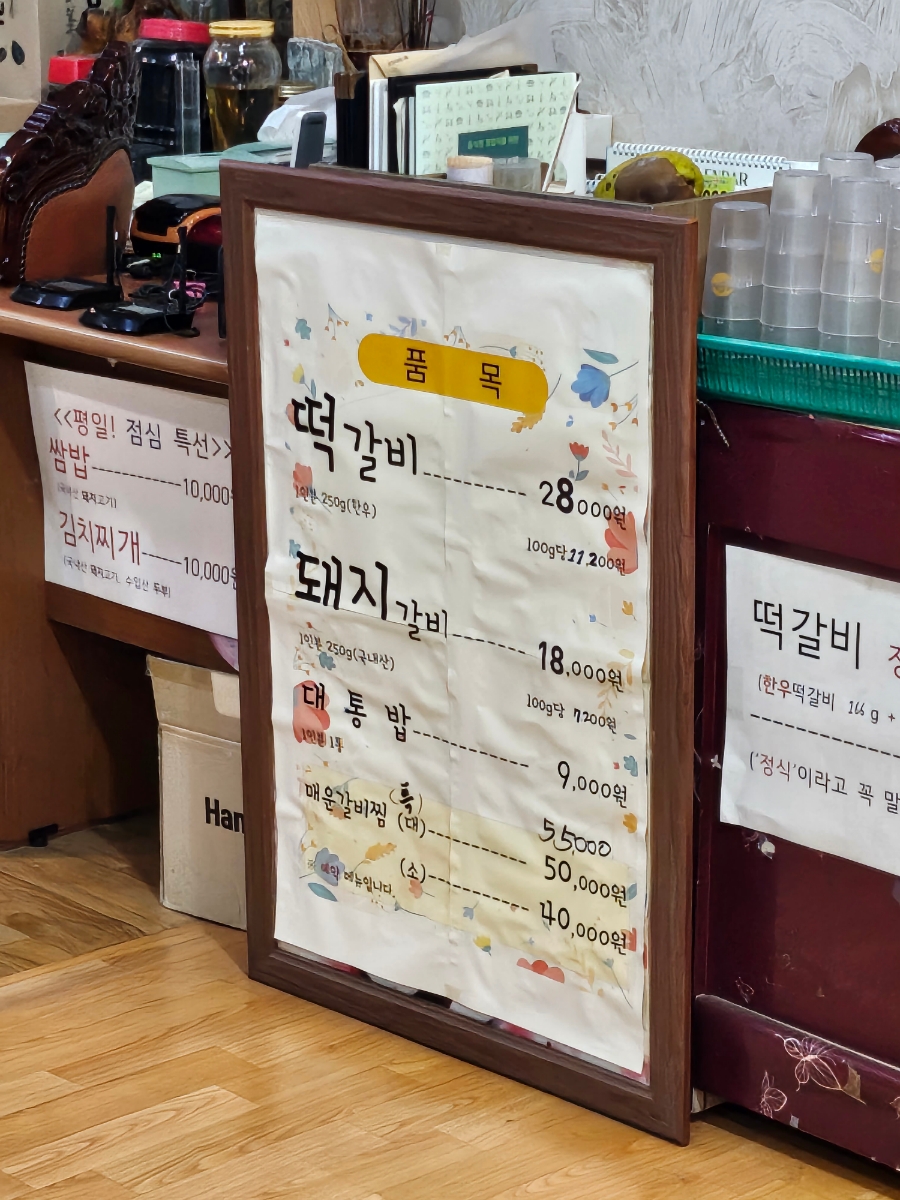 <<평일! 점심 특선>>
쌈밥 ---------- 10,000
(국내산 돼지고기)
김치찌개 ----- 10,000
(국내산 돼지고기, 수입산 두부)
Han
품 목
떡갈비 ---------- 28000원
1인분 250g(한우)
100g당 11.200원
돼지갈비 ---------- 18,000원
1인분 250g(국내산)
100g당 7200원
대 통 밥 ---------- 9,000원
1인분 1통
(특) 55000
매운갈비찜 (대) ---------- 50,000원
(소) ---------- 40,000원
※ 예약 메뉴입니다.
떡갈비
(한우떡갈비 166g +
('정식'이라고 꼭 말